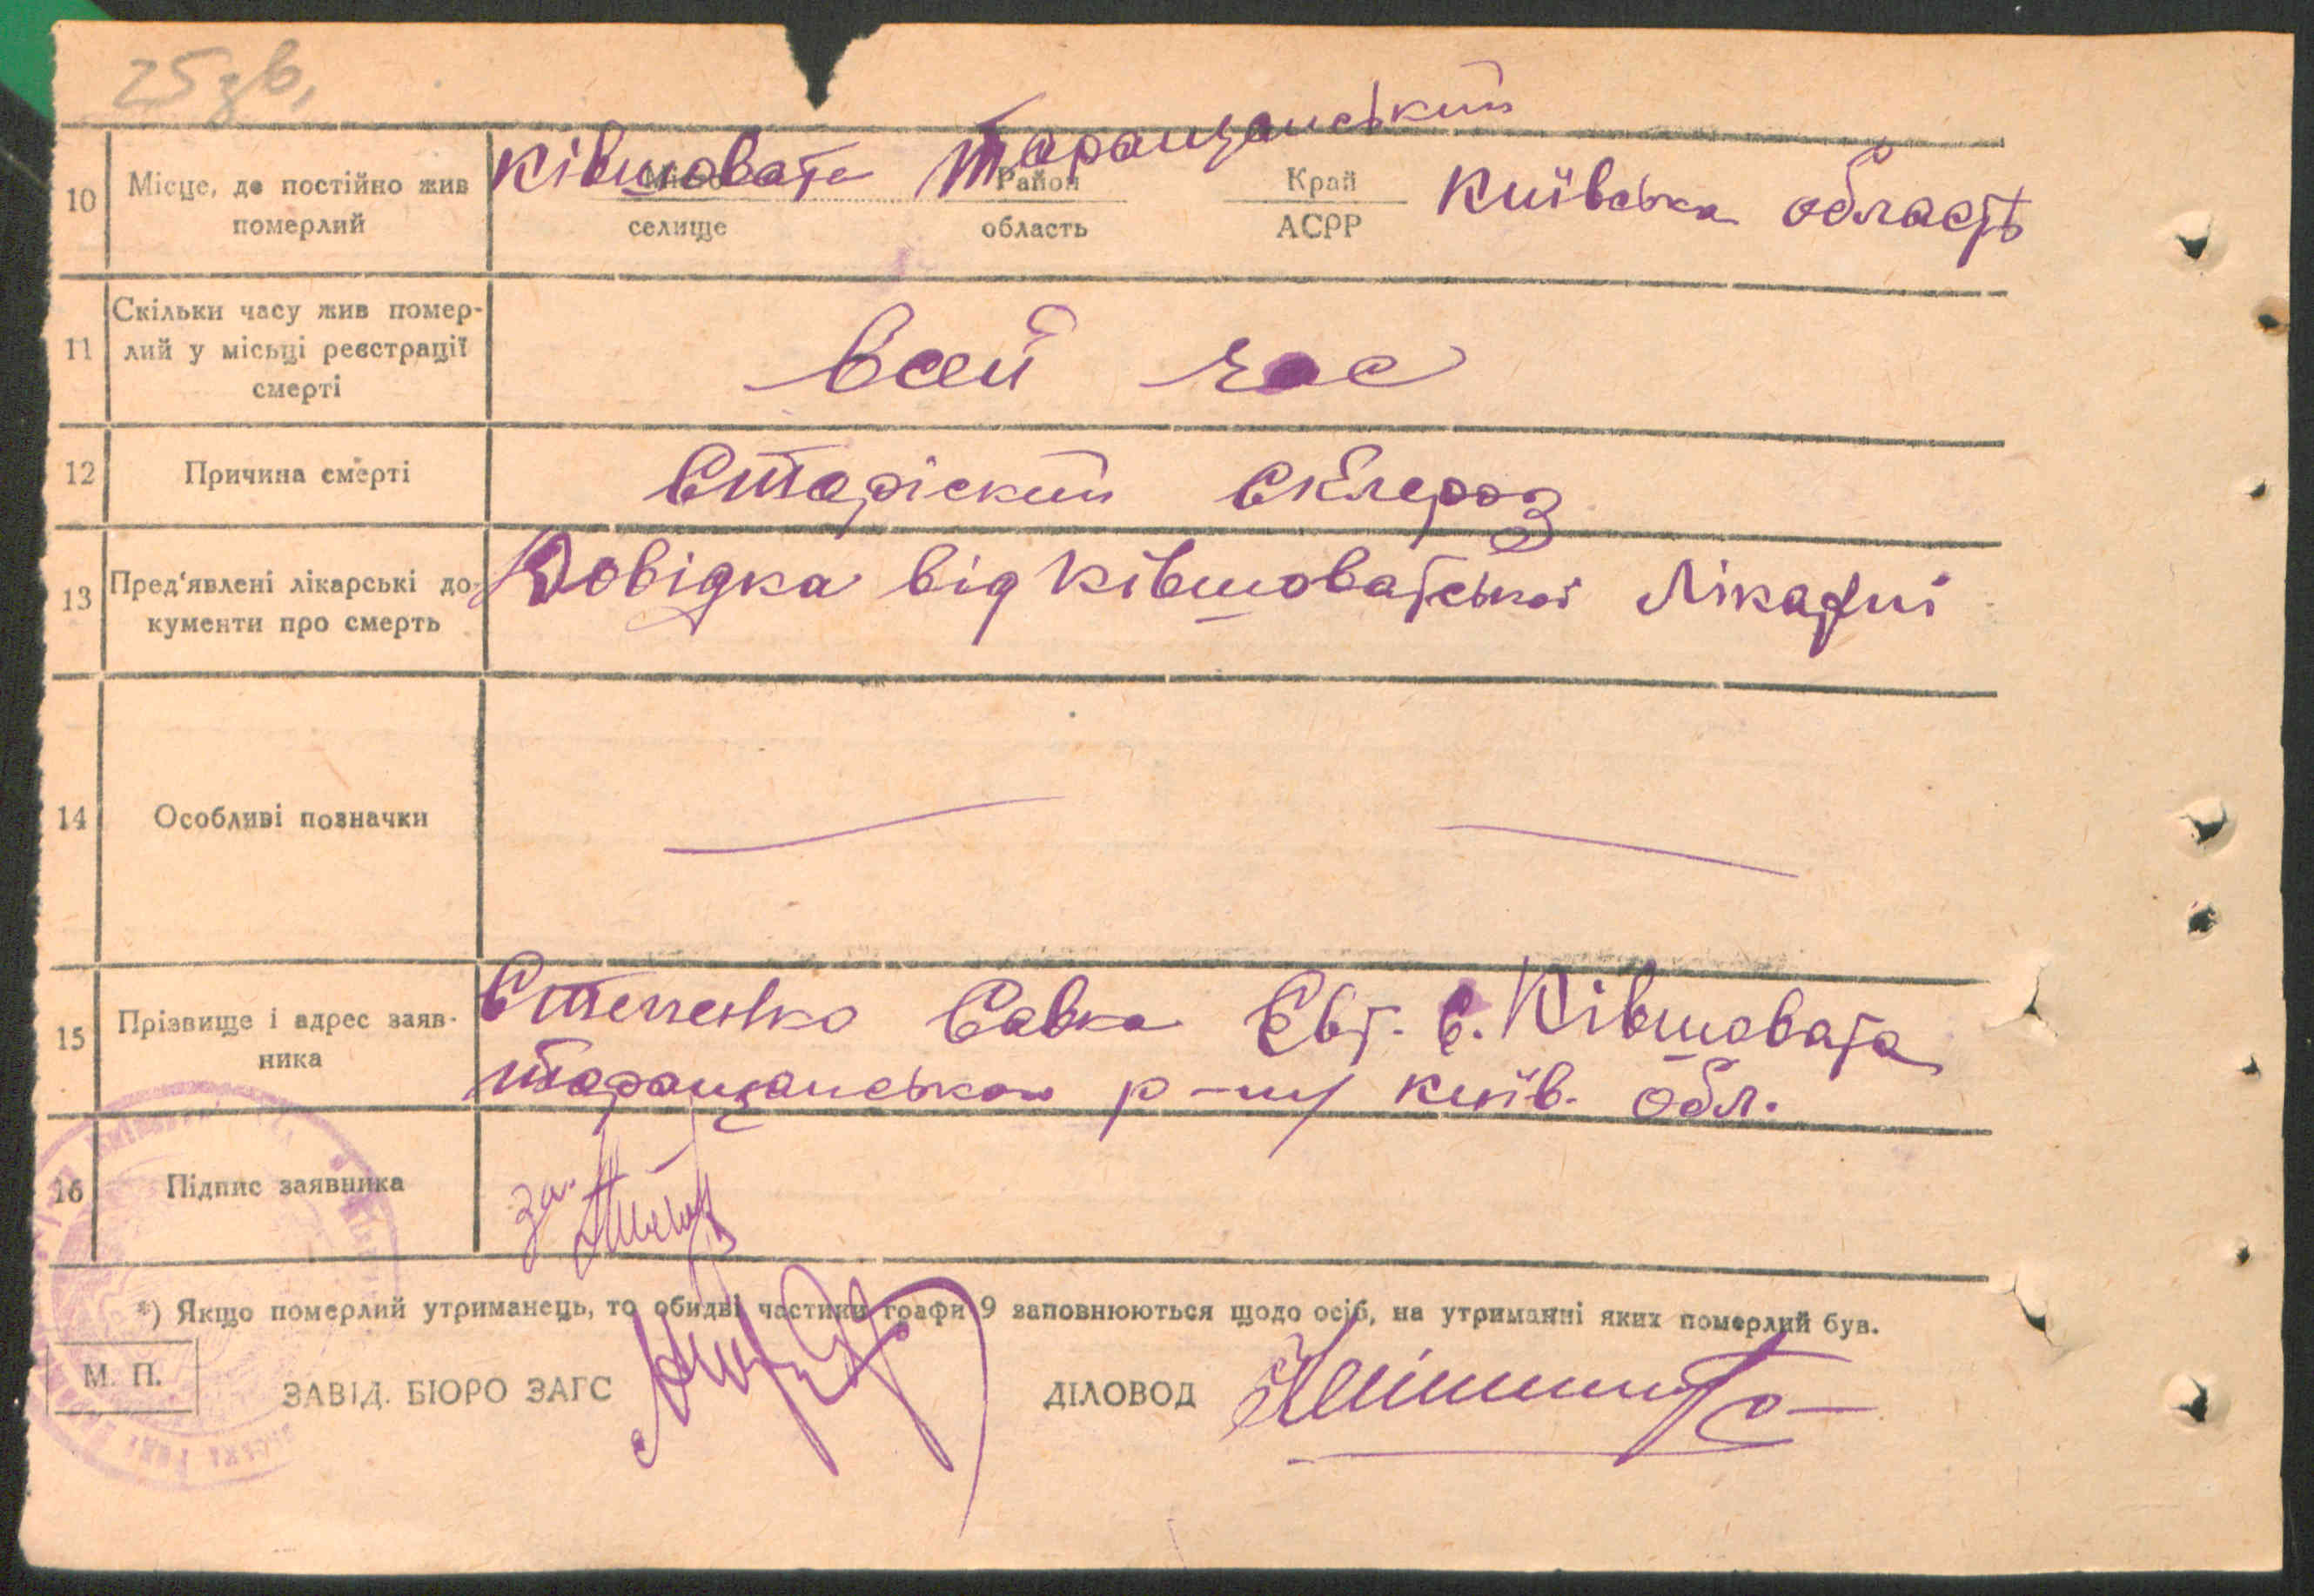 25 зв.
10 Місце, де постійно жив померлий Ківшовате Таращанський Київська область
Місто Район Край
селище область АСРР
11 Скільки часу жив помер-
лий у місьці реєстрації
смерті
всей час
12 Причина смерті Старіский склероз
13 Пред'явлені лікарські до-
кументи про смерть
Довідка від Ківшоватської Лікарні
14 Особливі позначки — —
15 Прізвище і адрес заяв-
ника
Степенко Савка Євт. с. Ківшовата
Таращанського р-ну київ. обл.
16 Підпис заявника за.
*) Якщо померлий утриманець, то обидві частини графи 9 заповнюються щодо осіб, на утриманні яких померлий був.
М. П.
ЗАВІД. БЮРО ЗАГС ДІЛОВОД